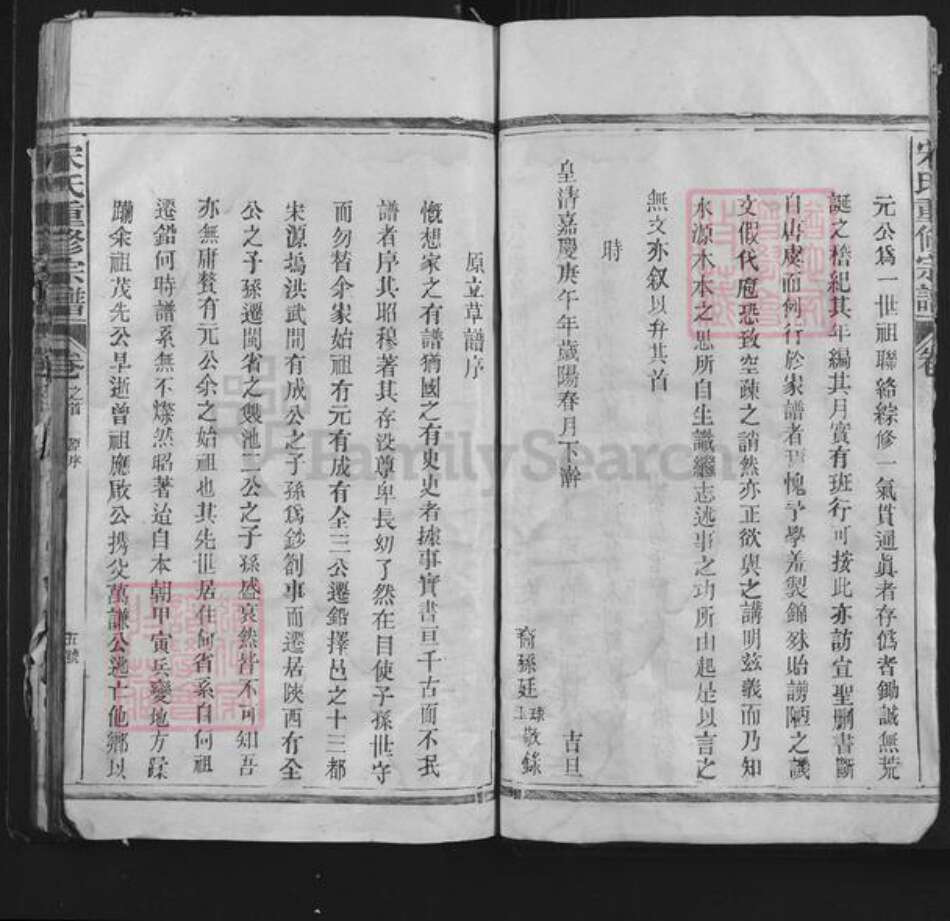 元公爲一世祖聯絡綜修一氣貫通眞者存僞者鋤誠無荒
誕之稽紀其年編其月實有班行可按此亦訪宣聖刪書斷
自唐虞而何行於家譜者耳愧予學羞製錦殊貽謭陋之譏
文假代庖恐致空疎之誚然亦正欲與之講明兹義而乃知
水源木本之思所自生讖繼志述事之功所由起是以言之
無文亦叙以弁其首
時
皇清嘉慶庚午年歲陽春月下澣
吉旦
裔孫廷球玉敬錄
宋氏重修宗譜
原立草譜序
慨想家之有譜猶國之有史史者據事實書亘千古而不氓
譜者序其昭穆著其存没尊卑長幼了然在目使子孫世守
而勿替余家始祖有元有成有全三公遷鉛擇邑之十三都
宋源塢洪武間有成公之子孫爲鈔劄事而遷居陜西有全
公之子孫遷閩省之幾池二公之子孫盛衰然皆不可知吾
亦無庸贅有元公余之始祖也其先世居住何省系自何祖
遷鉛何時譜系無不燦然昭著迨自本朝甲寅兵變地方蹂
躪余祖茂先公早逝曾祖應啟公携父萬謙公逃亡他鄉以
宋氏重修宗譜
卷一之首
譜序
五號